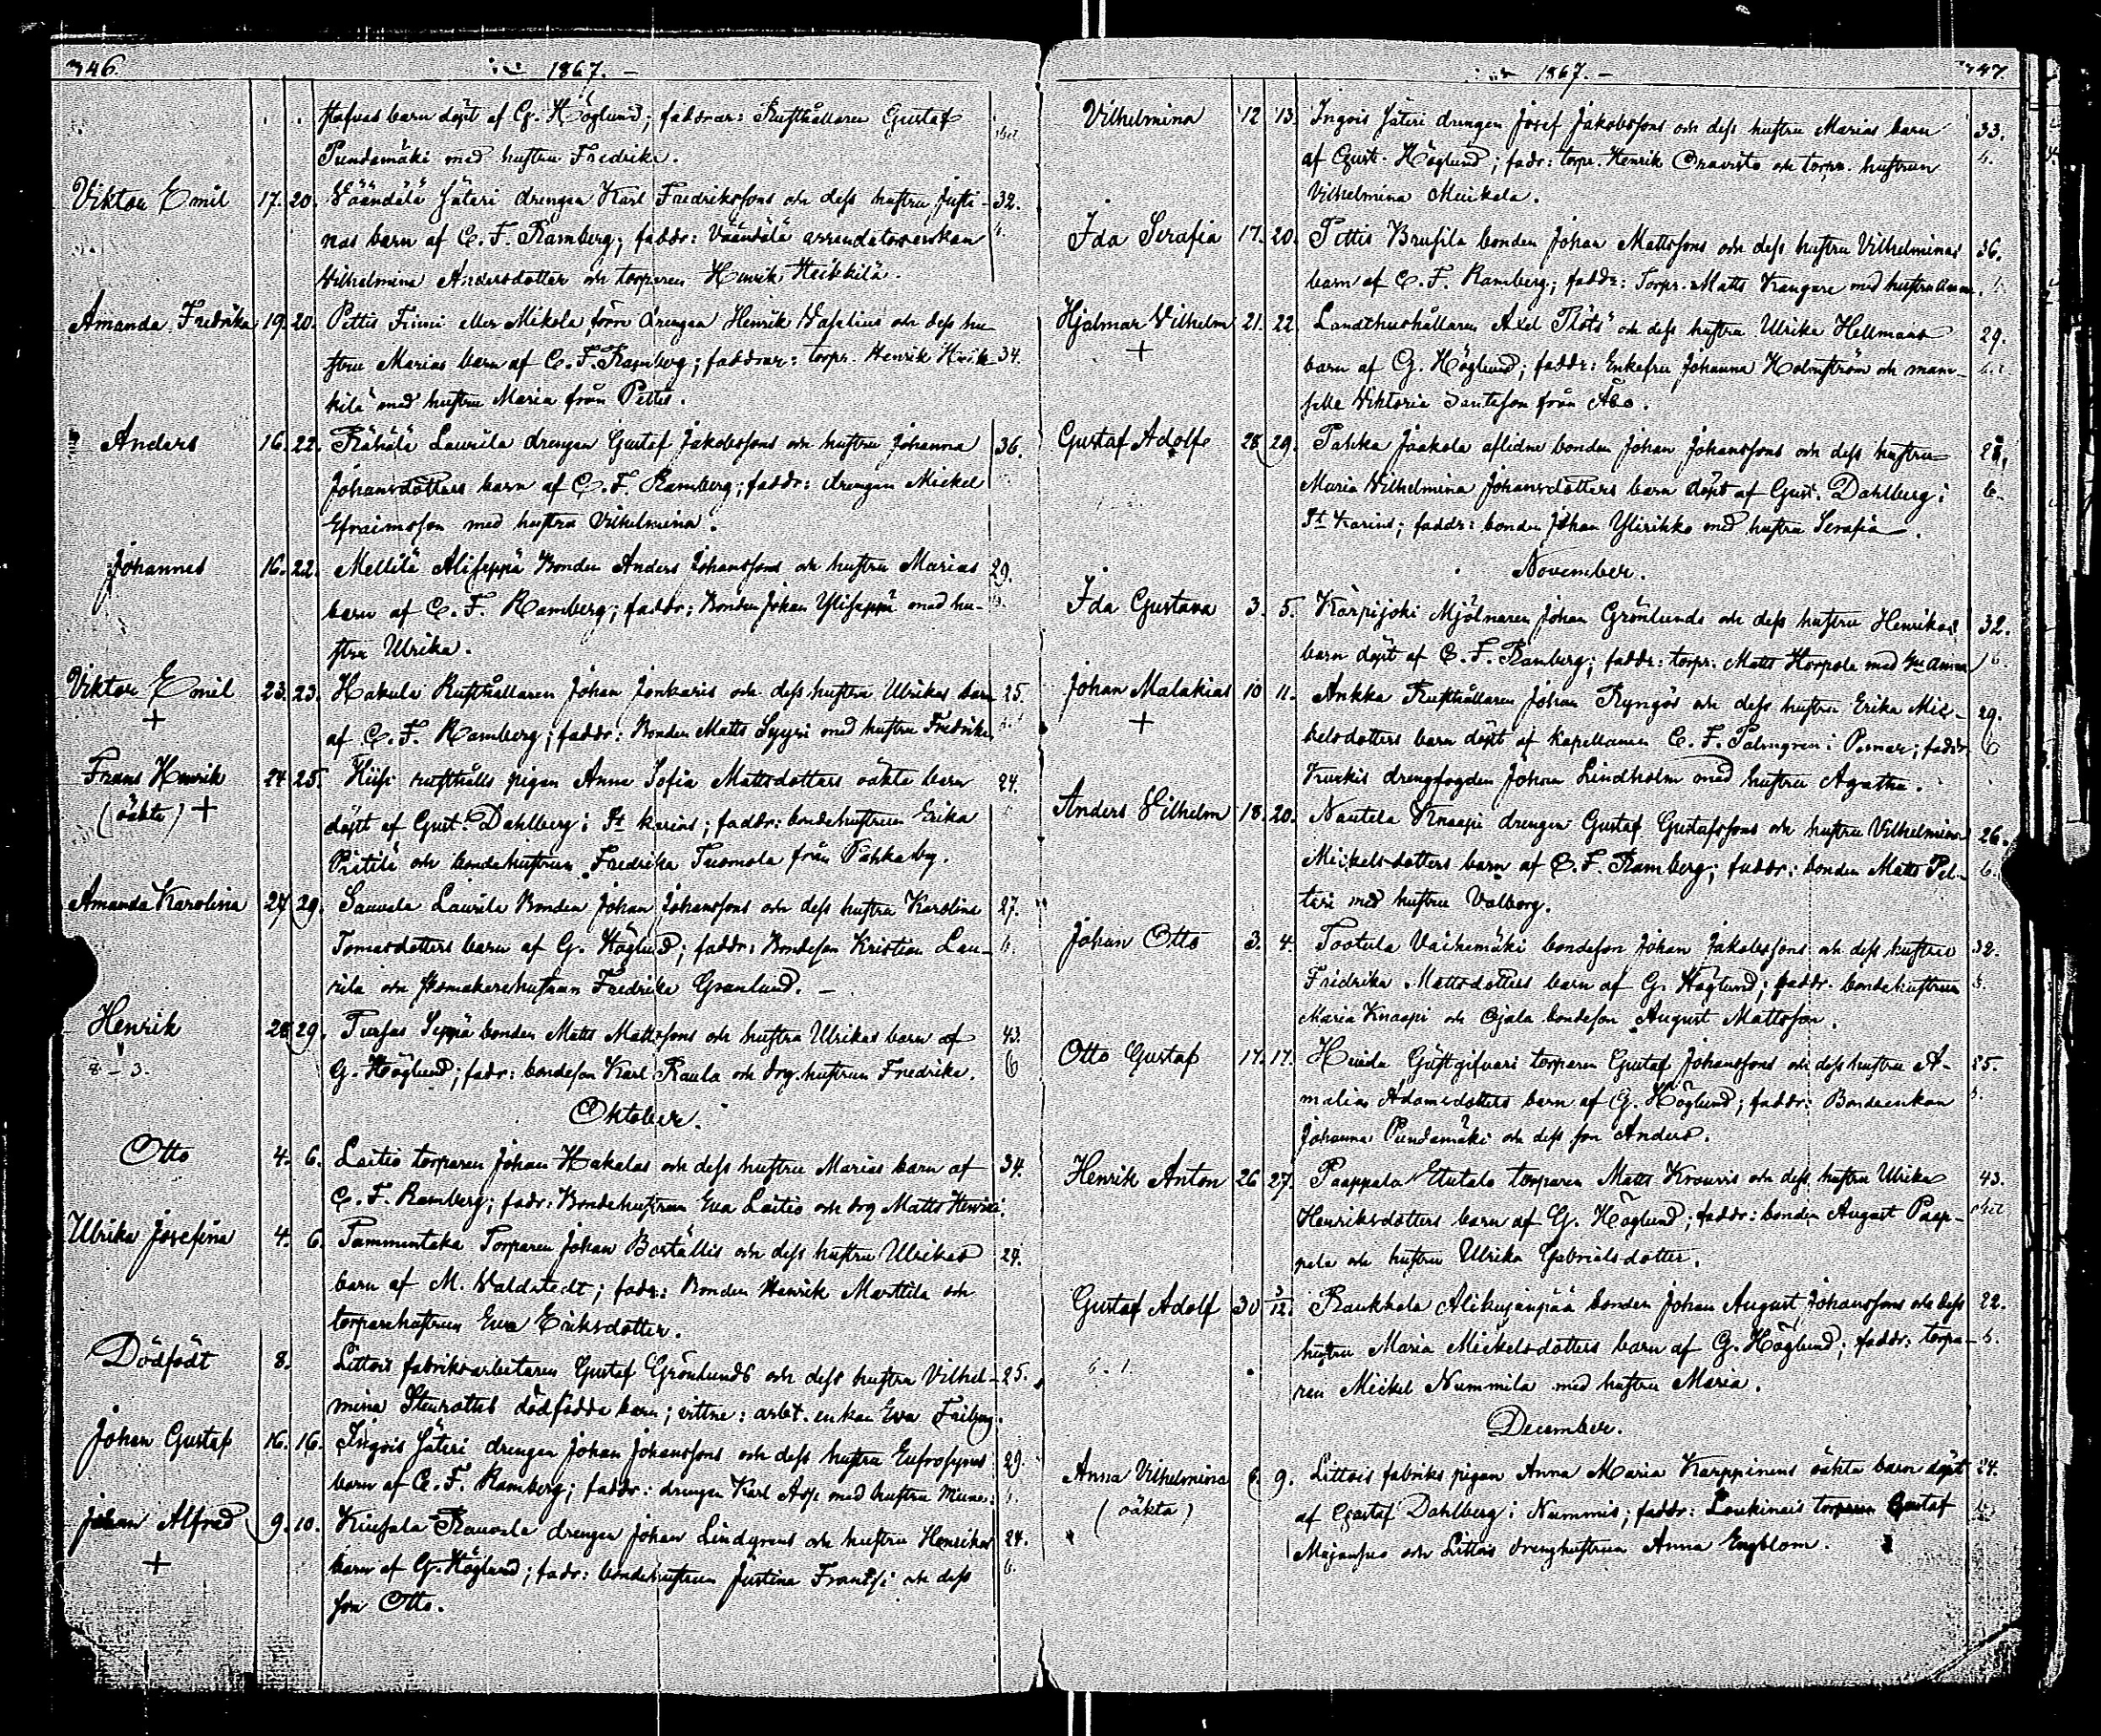 346.
1867.
stafvas barn döpt af G. Höglund; faddrar: Rusthållaren Gustaf
Pundamäki med hustru Fredrika.
Viktor Emil 17. 20. Väändälä Säteri drengen Karl Fredrikssons och dess hustru Justi- 32.
nas barn af C. F. Ramberg; faddr: Väändälä arrendatorsenkan 6.
Vilhelmina Andersdotter och torparen Henrik Heikkilä.
Amanda Fredrika 19. 20. Pettis Finni eller Mikola förre drengen Henrik Vaselius och dess hu-
stru Marias barn af C. F. Ramberg; faddrar: torpr. Henrik Heik- 34.
kilä med hustru Maria från Pettis.
Anders 16. 22. Rähälä Laurila drengen Gustaf Jakobssons och hustru Johanna 36.
Johansdotters barn af C. F. Ramberg; faddr: drengen Mickel
Efraimsson med hustru Vilhelmina.
Johannes 16. 22. Mellilä Aliseppä Bonden Anders Johanssons och hustru Marias 29.
barn af C. F. Ramberg; faddr: Bonden Johan Yliseppä med hu-
stru Ulrika.
Viktor Emil 23. 23. Hakula Rusthållaren Johan Jonkaris och dess hustru Ulrikas barn 25.
+ af C. F. Ramberg; faddr: Bonden Matts Syyri med hustru Fredrika.
Frans Henrik 24 25. Hiisi rusthålls pigan Anna Sofia Mattsdotters oäkta barn 24.
(oäkta) + döpt af Gust. Dahlberg i St Karins; faddr: bondehustrun Erika
Pritilä och bondehustrun Fredrika Tuomola från Pahka by.
Amanda Karolina 27 29. Sauvala Laurila Bonden Johan Johanssons och dess hustru Karolina 27.
Tomasdotters barn af G. Höglund; faddr: Bondeson Kristian Lau- 6.
rila och skomakarehustrun Fredrika Granlund. —
Henrik 28 29. Tursas Seppä bonden Matts Mattssons och hustru Ulrikas barn af 43.
8 - 3. G. Höglund; fadr: bondeson Karl Raula och drg. hustrun Fredrika. 6
Oktober.
Otto 4. 6. Laitio torparen Johan Hakalas och dess hustru Marias barn af 34.
C. F. Ramberg; fadr: Bondehustrun Eva Laitio och drg Matts Henriks.
Ulrika Josefina 4. 6. Tammentaka Torparen Johan Boställis och dess hustru Ulrikas 24.
barn af M. Waldstedt; fadr: Bonden Henrik Marttila och
torparehustrun Eva Eriksdotter.
Dödfödt 8. Littois fabriksarbetaren Gustaf Grönlunds och dess hustru Vilhel- 25.
mina Stenrottes dödfödda barn; vittne: arbt. enkan Eva Friberg.
Johan Gustaf 16. 16. Ingois Säteri drengen Johan Johanssons och dess hustru Eufrosynes 29.
barn af C. F. Ramberg; faddr: drengen Karl Asp med hustru
Johan Alfred 9. 10. Kiusala Rauvala drengen Johan Lindgrens och hustru Henrikas 24.
+ barn af G. Höglund; fadr: bondehustrun Justina Frantsi och dess 6.
son Otto.
1867. —
347.
Vilhelmina 12 13. Ingois Säteri drengen Josef Jakobssons och dess hustru Marias barn 33.
af Gust. Höglund; fadr: torpr. Henrik Oravisto och torpr. hustrun 6.
Vilhelmina Meikala.
Ida Serafia 17. 20. Pettis Brusila bonden Johan Mattssons och dess hustru Vilhelminas 36.
barn af C. F. Ramberg; faddr: Torpr. Matts Kangare med hustru Anna.
Hjalmar Vilhelm 21. 22 Landthushållaren Axel Plöts och dess hustru Ulrika Hellmans 29.
+ barn af G. Höglund; faddr: Enkefru Johanna Holmström och mam-
selle Viktoria från Åbo.
Gustaf Adolf 28 29. Pahka Jaakola aflidne bonden Johan Johanssons och dess hustru 28.
Maria Vilhelmina Johansdotters barn döpt af Gust. Dahlberg i 6.
St Karins; faddr: bonden Johan Ylirikko med hustru Serafia.
November.
Ida Gustava 3. 5. Karpijoki Mjölnaren Johan Grönlunds och dess hustru Henrikas 32.
barn döpt af C. F. Ramberg; faddr: torpr. Matts Korpola med Hu Anna 6.
Johan Malakias 10 11. Ankka Rusthållaren Johan Ryngös och dess hustru Erika Mic- 29.
+ kelsdotters barn döpt af Kapellanen C. F. Palmgren i Pemar; faddr. 6
Kurkis drengfogden Johan Lindholm med hustru Agatha.
Anders Vilhelm 18. 20. Nautela Knaapi drengen Gustaf Gustafssons och hustru Vilhelmina 26.
Mickelsdotters barn af C. F. Ramberg; faddr: bonden Matts Pel- 6.
tari med hustru Valborg.
Johan Otto 3. 4. Tootula Vaihemäki bondeson Johan Jakobssons och dess hustru 32.
Fredrika Mattsdotters barn af G. Höglund; faddr. bondehustrun
Maria Knaapi och Ojala bondeson August Mattsson.
Otto Gustaf 17. 17. Huida Gästgifvari torparen Gustaf Johanssons och dess hustru A- 25.
malias Adamsdotters barn af G. Höglund; faddr: Bondeenkan
Johanna Pundamäki och dess son Anders.
Henrik Anton 26 27. Paappala Eutala torparen Matts Krouvis och dess hustru Ulrika 43.
Henriksdotters barn af G. Höglund; faddr: bonden August Paap-
pala och hustru Ulrika Gabrielsdotter.
Gustaf Adolf 30 3/12. Raukkala Alikujanpää bonden Johan August Johanssons och dess 22.
hustru Maria Mickelsdotters barn af G. Höglund; faddr: torpa- 6.
ren Mickel Nummila med hustru Maria.
December.
Anna Vilhelmina 6. 9. Littois fabriks pigan Anna Maria Karppinens oäkta barn döpt 24.
(oäkta) af Gustaf Dahlberg i Nummis; faddr: Loukinais torparen Gustaf
Majanpää och Littois drenghustrun Anna Engblom.